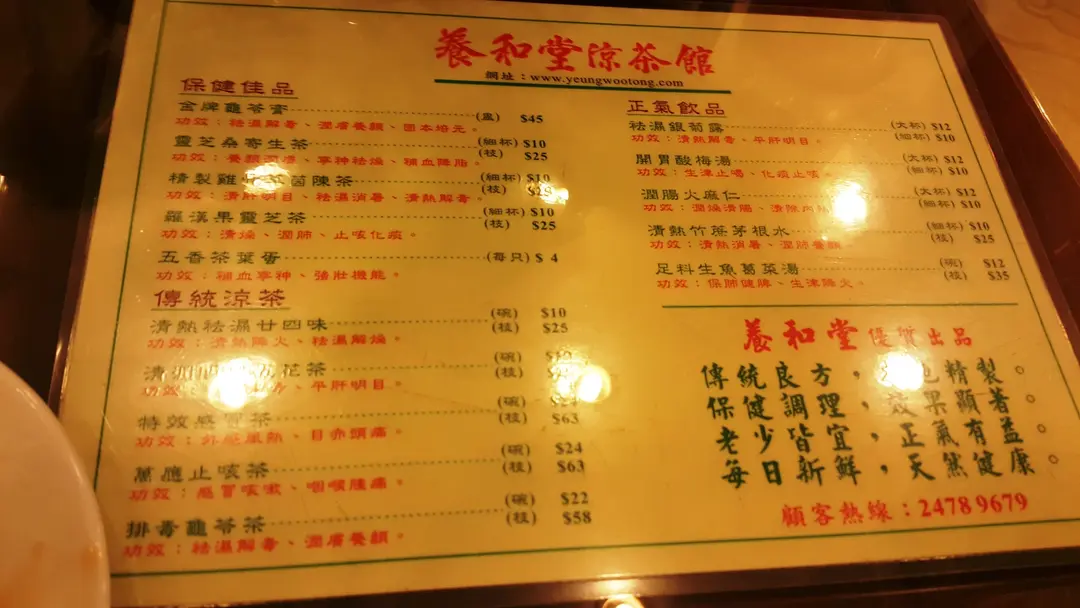 養和堂涼茶館
網址：www.yeungwootong.com
保健佳品
金牌龜苓膏 (盅) $45
功效：祛濕解毒、潤膚養顏、固本培元。
靈芝桑寄生茶 (細杯) $10
(枝) $25
功效：養顏 寧神祛燥、補血降脂。
精製雞 茵陳茶 (細杯) $10
(枝) $25
功效：清肝明目、祛濕消暑、清熱解毒。
羅漢果靈芝茶 (細杯) $10
(枝) $25
功效：清燥、潤肺、止咳化痰。
五香茶葉蛋 (每只) $ 4
功效：補血寧神、強壯機能。
傳統涼茶
清熱祛濕廿四味 (碗) $10
(枝) $25
功效：清熱降火、祛濕解燥。
清 花茶 (碗) $10
(枝)
功 、平肝明目。
特效感冒茶 (碗)
(枝) $63
功效：外感風熱、目赤頭痛。
萬應止咳茶 (碗) $24
(枝) $63
功效：感冒咳嗽、咽喉腫痛。
排毒龜苓茶 (碗) $22
(枝) $58
功效：祛濕解毒、潤膚養顏。
正氣飲品
祛濕銀菊露 (大杯) $12
(細杯) $10
功效：清熱解毒、平肝明目。
開胃酸梅湯 (大杯) $12
(細杯) $10
功效：生津止喝、化痰止咳。
潤腸火麻仁 (大杯) $12
(細杯) $10
功效：潤燥清腸、清除內
清熱竹蔗茅根水 (細杯) $10
(枝) $25
功效：清熱消暑、潤肺養顏
足料生魚葛菜湯 (碗) $12
(枝) $35
功效：保肺健脾、生津降火。
養和堂優質出品
傳統良方， 精製。
保健調理，效果顯著。
老少皆宜，正氣有益。
每日新鮮，天然健康。
顧客熱線：2478 9679